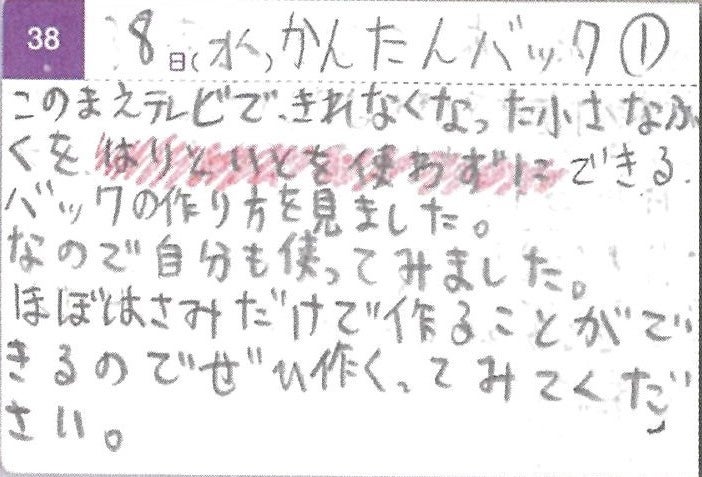 38 8日(水)かんたんバック①
このまえテレビで、きれなくなった小さなふ
くをはりといとを使わずにできる
バックの作り方を見ました。
なので自分も使ってみました。
ほぼはさみだけで作ることがで
きるのでぜひ作くってみてくだ
さい。